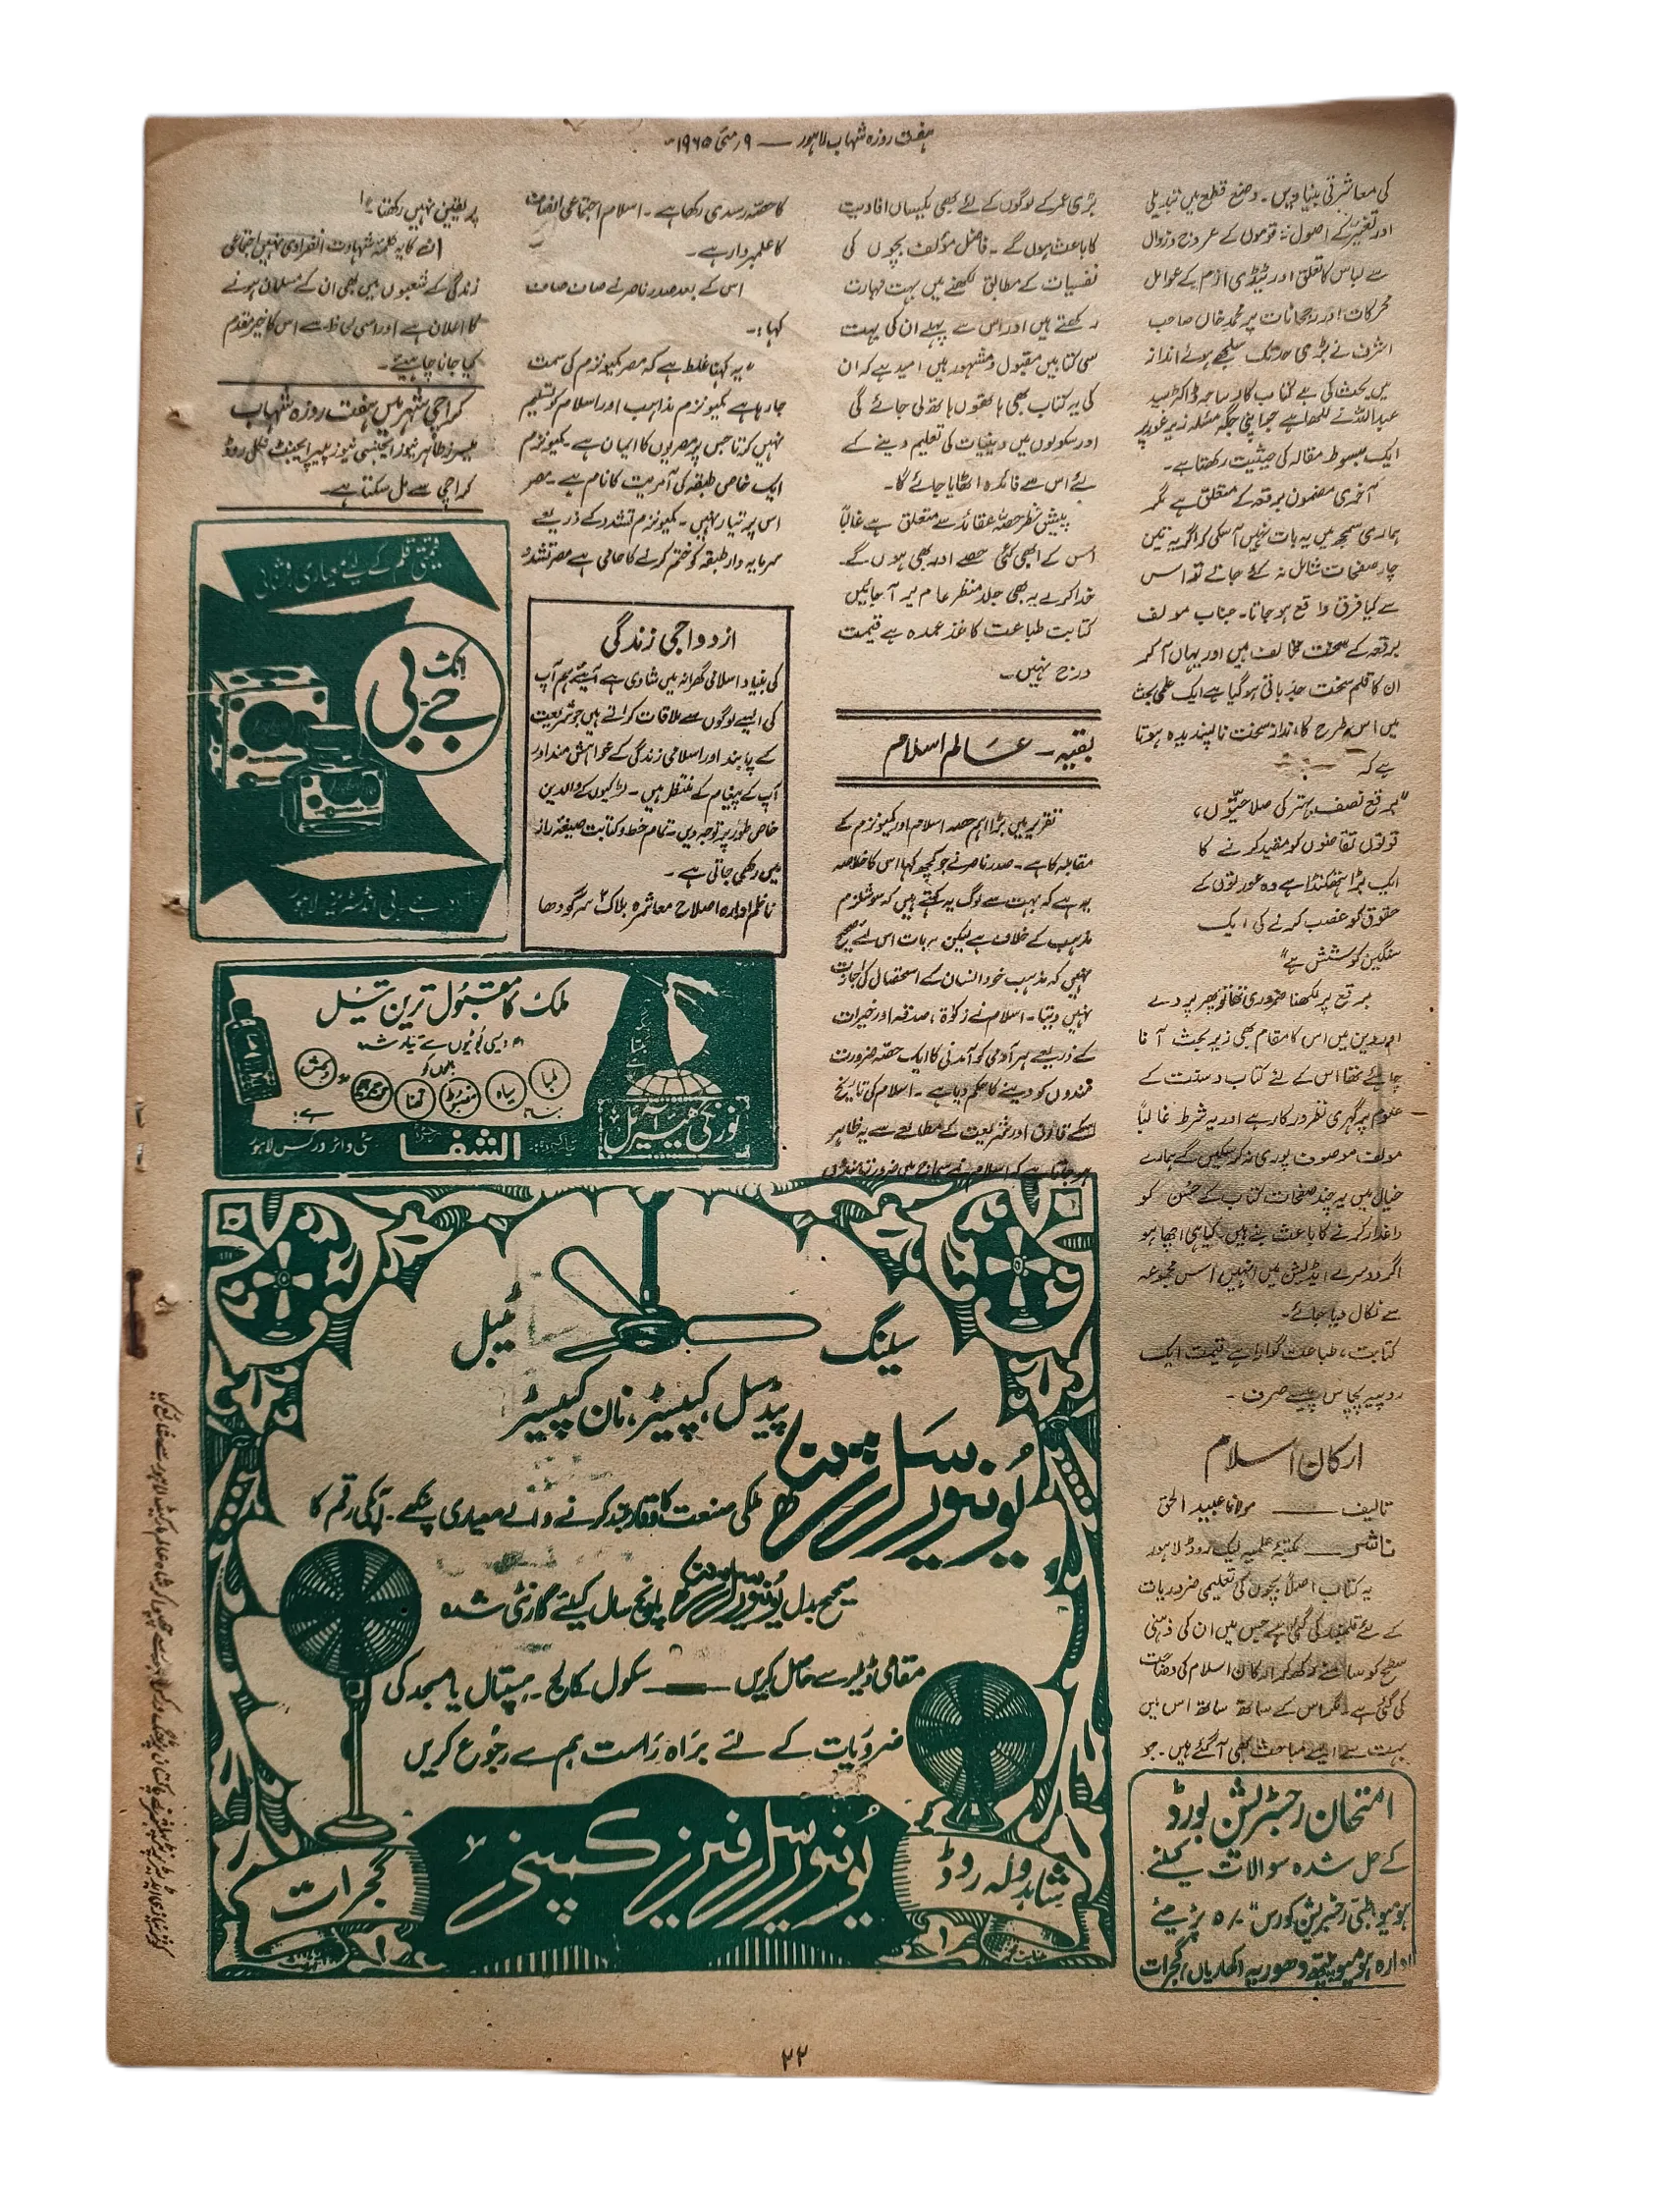 ہفت روزہ شہاب لاہور — ۹ مئی ۱۹۶۵ء
کی معاشرتی بنیادیں۔ وضع قطع میں تبدیلی
اور تغیر کے اصول نہ قوموں کے عروج و زوال
سے لباس کا تعلق اور ٹیڈی ازم کے عوامل
محرکات اور رجحانات پر محمد خاں صاحب
اشرف نے بڑی حد تک سلجھے ہوئے انداز
میں بحث کی ہے کتاب کا دیباچہ ڈاکٹر سید
عبداللہ نے لکھا ہے جو اپنی جگہ مسئلہ زیر غور پر
ایک مبسوط مقالہ کی حیثیت رکھتا ہے۔
آخری مضمون برقعہ کے متعلق ہے مگر
ہماری سمجھ میں یہ بات نہیں آسکی کہ اگر یہ تین
چار صفحات شامل نہ کئے جاتے تو اس
سے کیا فرق واقع ہو جاتا۔ جناب مولف
برقعہ کے سخت مخالف ہیں اور یہاں آ کر
ان کا قلم سخت جذباتی ہو گیا ہے ایک علمی بحث
میں اس طرح کا انداز سخت ناپسندیدہ ہوتا
ہے کہ
"برقع نصف بہتر کی صلاحیتوں،
قوتوں تقاضوں کو مقید کرنے کا
ایک بڑا ہتھکنڈا ہے وہ عورتوں کے
حقوق کو غصب کرنے کی ایک
سنگین کوشش ہے"
برقع پر لکھنا ضروری تھا تو پھر پردے
اور دین میں اس کا مقام بھی زیر بحث آنا
چاہئے تھا اس کے لئے کتاب و سنت کے
علوم پر گہری نظر درکار ہے اور یہ شرط غالباً
مولف موصوف پوری نہ کر سکیں گے ہمارے
خیال میں یہ چند صفحات کتاب کے حسن کو
داغدار کرنے کا باعث بنے ہیں کیا ہی اچھا ہو
اگر دوسرے ایڈیشن میں انہیں اس مجموعہ
سے نکال دیا جائے۔
کتابت، طباعت گوارا ہے قیمت ایک
روپیہ پچاس پیسے صرف۔
ارکان اسلام
تالیف —— مولانا عبید الحق
ناشر —— مکتبہ علمیہ لیک روڈ لاہور
یہ کتاب اصلاً بچوں کی تعلیمی ضروریات
کے لئے قلمبند کی گئی ہے جس میں ان کی ذہنی
سطح کو سامنے رکھ کر ارکان اسلام کی وضاحت
کی گئی ہے مگر اس کے ساتھ ساتھ اس میں
بہت سے ایسے مباحث بھی آ گئے ہیں۔ جو
امتحان رجسٹریشن بورڈ
کے حل شدہ سوالات کیلئے
ہومیو طبی رجسٹریشن کورس ۵/۰ پڑھئے
ادارہ ہومیوپیتھ دھوریہ کھاریاں گجرات
بڑی عمر کے لوگوں کے لئے بھی یکساں افادیت
کا باعث ہوں گے۔ فاضل مؤلف بچوں کی
نفسیات کے مطابق لکھنے میں بہت مہارت
رکھتے ہیں اور اس سے پہلے ان کی بہت
سی کتابیں مقبول و مشہور ہیں امید ہے کہ ان
کی یہ کتاب بھی ہاتھوں ہاتھ لی جائے گی
اور سکولوں میں دینیات کی تعلیم دینے کے
لئے اس سے فائدہ اٹھایا جائے گا۔
پیش نظر حصہ عقائد سے متعلق ہے غالباً
اس کے ابھی کئی حصے اور بھی ہوں گے۔
خدا کرے یہ بھی جلد منظر عام پر آ جائیں
کتابت طباعت کاغذ عمدہ ہے قیمت
درج نہیں۔
بقیہ — عالم اسلام
تقریر میں بڑا اہم حصہ اسلام اور کمیونزم کے
مقابلہ کا ہے۔ صدر ناصر نے جو کچھ کہا اس کا خلاصہ
یہ ہے کہ بہت سے لوگ یہ کہتے ہیں کہ سوشلزم
مذہب کے خلاف ہے لیکن یہ بات اس لئے صحیح
نہیں کہ مذہب خود انسان کے استحصال کی اجازت
نہیں دیتا۔ اسلام نے زکوٰۃ، صدقہ اور خیرات
کے ذریعے ہر آدمی کو آمدنی کا ایک حصہ ضرورت
مندوں کو دینے کا حکم دیا ہے۔ اسلام کی تاریخ
اسکے قانون اور شریعت کے مطالعے سے یہ ظاہر
ہو جاتا ہے کہ اسلام نے سماج میں ضرورتمندوں
کا حصہ رسدی رکھا ہے۔ اسلام اجتماعی انصاف
کا علمبردار ہے۔
اس کے بعد صدر ناصر نے صاف صاف
کہا:۔
"یہ کہنا غلط ہے کہ مصر کمیونزم کی سمت
جا رہا ہے کمیونزم مذاہب اور اسلام کو تسلیم
نہیں کرتا جس پر مصریوں کا ایمان ہے۔ کمیونزم
ایک خاص طبقہ کی آمریت کا نام ہے۔ مصر
اس پر تیار نہیں۔ کمیونزم تشدد کے ذریعے
سرمایہ دار طبقہ کو ختم کرنے کا حامی ہے مصر تشدد
ازدواجی زندگی
کی بنیاد اسلامی گھرانہ میں شادی ہے آیئے ہم آپ
کی ایسے لوگوں سے ملاقات کراتے ہیں جو شریعت
کے پابند اور اسلامی زندگی کے خواہش مند اور
آپ کے پیغام کے منتظر ہیں۔ لڑکیوں کے والدین
خاص طور پر توجہ دیں۔ تمام خط و کتابت صیغہ راز
میں رکھی جاتی ہے۔
ناظم ادارہ اصلاح معاشرہ بلاک ۲ سرگودھا
پر یقین نہیں رکھتا۔"
انکے کا یہ کلمۂ شہادت انفرادی نہیں اجتماعی
زندگی کے شعبوں میں بھی ان کے مسلمان ہونے
کا اعلان ہے اور اسی لحاظ سے اس کا خیر مقدم
کیا جانا چاہیئے۔
کراچی شہر میں ہفت روزہ شہاب
میسرز طاہر نیوز ایجنسی نیوز پیپر ایجنٹ نیپئر روڈ
کراچی سے مل سکتا ہے۔
قیمتی قلم کے لیے معیاری روشنائی
جے بی
انک
جے۔ بی انڈسٹریز لاہور
ملک کا مقبول ترین تیل
دیسی بوٹیوں سے تیار شدہ
بالوں کو
لمبا
سیاہ
مضبوط
گھنا
چمکدار
و
دلکش
بناتا
ہے:
نورانی ہیئر آئل
تیار کردہ:
الشفا
سٹی واٹر ورکس لاہور
سیلنگ
ٹیبل
پیڈسٹل، کپیسٹر، نان کپیسٹر
یونیورسل فینز
ملکی صنعت کا وقار بلند کرنے والے معیاری پنکھے۔ آپکی رقم کا
صحیح بدل یونیورسل فینز پانچ سال کیلئے گارنٹی شدہ
مقامی ڈیلر سے حاصل کریں —— سکول کالج۔ ہسپتال یا مسجد کی
ضروریات کے لئے براہ راست ہم سے رجوع کریں
یونیورسل فینز کمپنی
شاہدولہ روڈ
گجرات
۲۲